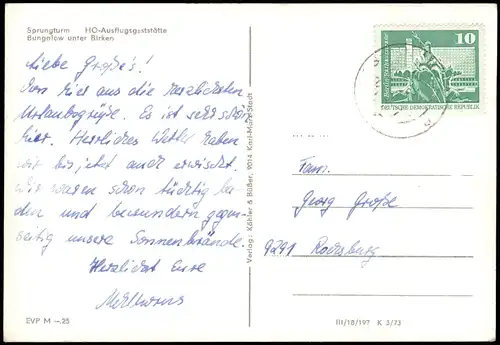 Sprungturm HO-Ausflugsgaststätte
Bungalow unter Birken
Liebe Große's!
Von hier aus die herzlichsten
Urlaubsgrüße. Es ist sehr schön
hier. Herrliches Wetter haben
wir bis jetzt auch erwischt.
Wir waren schon tüchtig ba-
den und bewundern gegen-
seitig unsere Sonnenbrände.
Herzlichst Eure
EVP M —.25
Verlag: Köhler & Büßer, 9014 Karl-Marx-Stadt
10
DEUTSCHE DEMOKRATISCHE REPUBLIK
Fam.
Georg Große
9291 Rochsburg
III/18/197 K 3/73